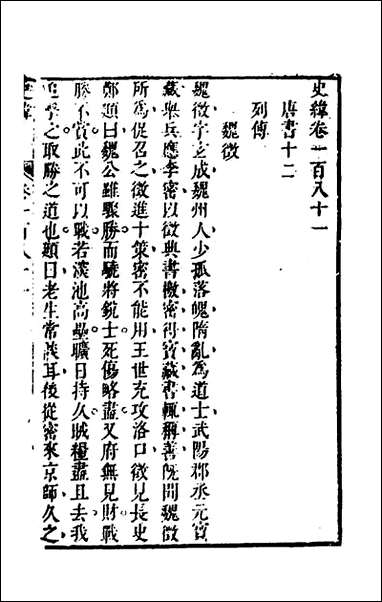 史緯卷一百八十一
唐書十二
列傳
魏徵
魏徵字玄成魏州人少孤落魄隋亂為道士武陽郡丞元寶
藏舉兵應李密以徵典書檄密得寶藏書輒稱善既聞魏徵
所為促召之徵進十策密不能用王世充攻洛口徵見長史
鄭頲曰魏公雖驟勝而驍將銳士死傷略盡又府無見財戰
勝不賞此不可以戰若浚池高壘曠日持久賊糧盡且去我
追擊之取勝之道也頲曰老生常談耳後從密來京師久之